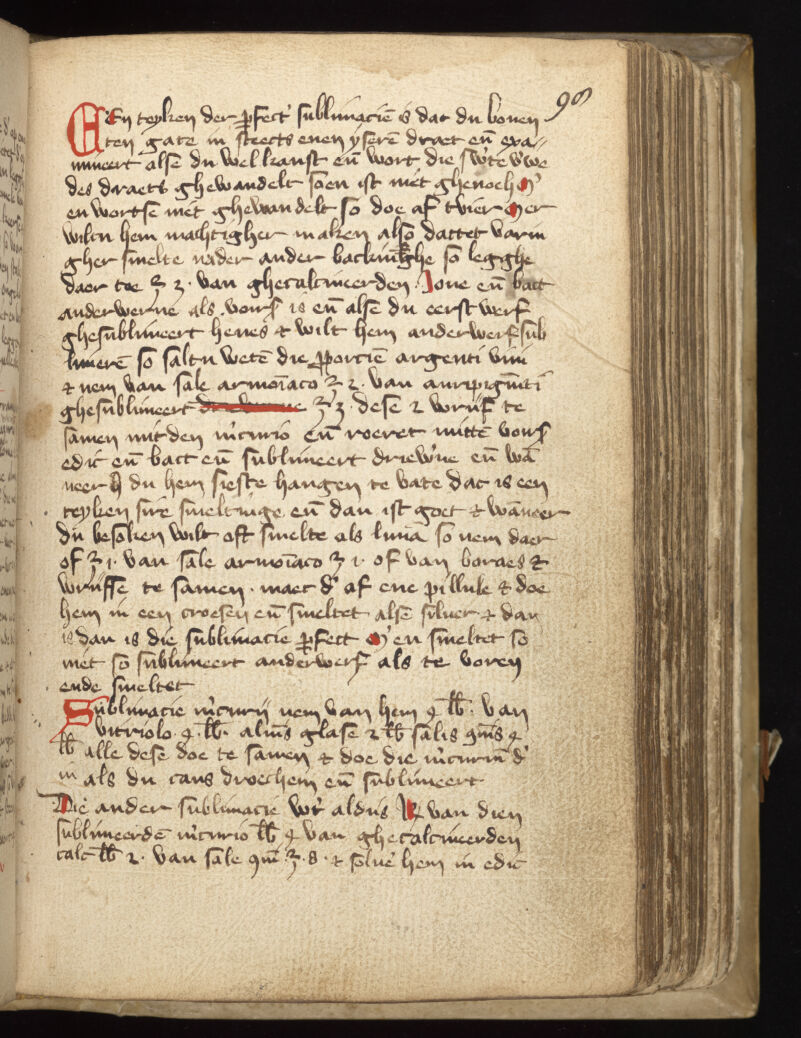 98
EEn teyken der pfect' sublimaciē is dat du bouen
ten gate in steects enen yserē draet eñ exa//
mineert alse du wel kanst eñ wort die
des draets ghewandelt soen ist niet ghenoech
en wortse niet ghewandelt so doe af tvier Mer
wiltu hem machtigher maken also dattet varin
gher smelte nader ander backinghe so legghe
daer toe ʒ 3 . van ghecalcineerden . Joue eñ bact
anderwerue als vours is eñ alse du eerst werf
ghesublimeert heues & wilt hem anderwerf sub
limerē so saltu wetē die pporciē argenti viui
& nem van sale armoīaco ʒ 2 . van auripigmēti
ghesublimeert ʒ 3 . dese 2 wrijf te
samen mitden m'curio eñ roeret mittē vours
edic eñ bact eñ sublimeert driew'ue eñ wā
neer du hem sieste hangen te vate dat is een
teyken sire smeltinge eñ dan ist goet & wāneer
du besoken wilt oft smelte als luna so nem daer
of ʒ 1 . van sale armoīaco ʒ 1 . of van boraes &
wrijffe te samen . maec d' af ene pillule & doe
hem in een croesen eñ smeltet alse siluer & dan
is dan is die sublimacie pfect M' en smeltet so
niet so sublimeert anderwerf als te voren
ende smeltet
Sublimacie m'curij nem van hem 4 lb . van
vitriolo 4 . lb . alum̄ glase 2 lb salis 9mis 4
lb alle dese doe te samen & doe die m'curiū d'
in als du cans droechem eñ sublimeert
Die ander sublimacie wt aldus R van dien
sublimeerdē m'curio lb 4 van ghecalcineerden
calc lb 2 . van sale 9m̄ . ʒ . 8 . & solue hem in edic